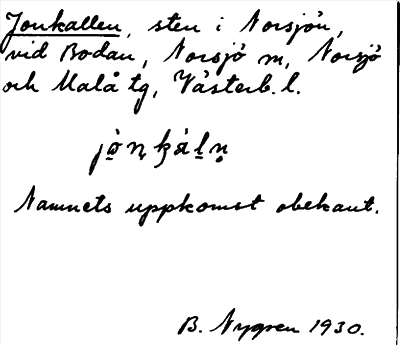 Jonkallen, sten i Norsjön,
vid Bodan, Norsjö sn, Norsjö
och Malå tg, Västerb. l.
Namnets uppkomst obekant.
B. Nygren 1930.